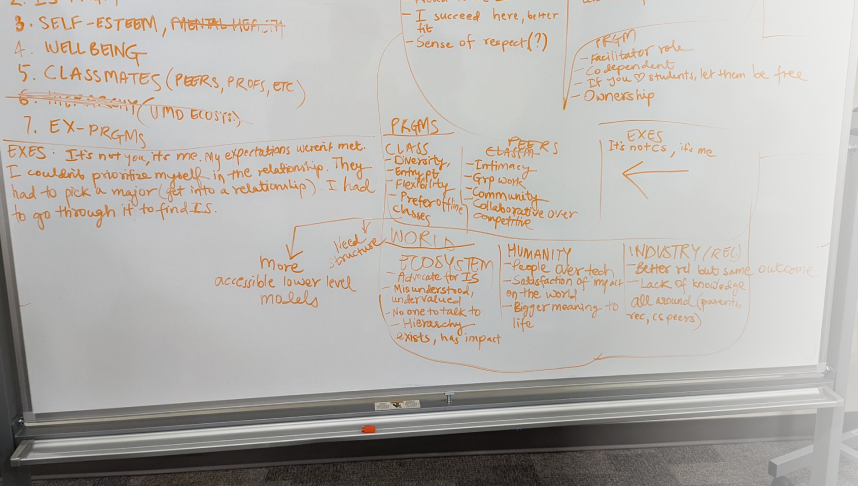 3. SELF-ESTEEM, MENTAL HEALTH
4. WELLBEING
5. CLASSMATES (PEERS, PROFS, ETC)
6. HIERARCHY (UMD ECOSYS)
7. EX-PRGMS
EXES: It's not you, it's me. My expectations weren't met.
I couldn't prioritize myself in the relationship. They
had to pick a major (get into a relationship) I had
to go through it to find IS.
more
accessible lower level
Need
structure
- I succeed here, better
fit
- Sense of respect(?)
PRGM
- Facilitator role
- Codependent
- If you ♡ students, let them be free
- Ownership
PRGMS
CLASS
- Diversity,
- Entry pt
- Flexibility
- Prefer offline
classes
PEERS
- Intimacy
- Grp work
- Community
- Collaborative over
competitive
EXES
It's not CS, it's me
WORLD
ECOSYSTEM
- Advocate for IS
- Misunderstood,
undervalued
- No one to talk to
- Hierarchy
exists, has impact
HUMANITY
- People over tech
- Satisfaction of impact
on the world
- Bigger meaning to
life
INDUSTRY/REL)
- Better rel but same outcome
- Lack of knowledge
all around (parents,
rec, cs peers)